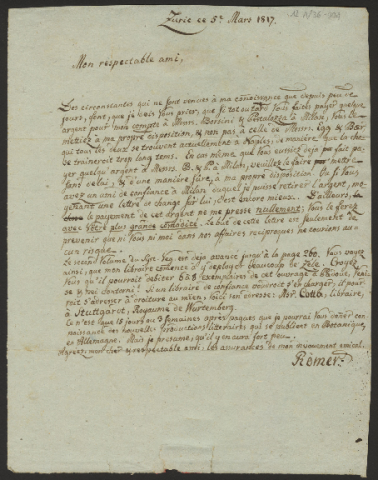 Zuric ce 5e Mars 1817.
Mon respectable ami,
Les circonstances qui ne sont venues à ma conoissance que depuis peu de
jours, font, que je dois vous prier, que si tot ou tard vous faites payer quelque
argent pour mon compte à Messrs. à Milan, vous le
mettiez à ma propre disposition, & non pas à celle de Messrs. Egg & Bär
qui tous les deux se trouvent actuellement à Naples, de manière que la chose
se traineroit trop long tems. En cas même que vous eussiez deja pu fait pa-
yer quelqu'argent à Messrs. B. & à Milan, veuillez le faire mettre
sans delai, & d'une manière sure, à ma propre disposition. Ou si vous
avez un ami de confiance à Milan duquel je puisse retirer l'argent, mo-
yennant une lettre de change sur lui, c'est encore mieux. D'ailleurs,
le payement de cet argent ne me presse nullement; vous le ferez
avec votre plus grande comodité. Le but de cette lettre est seulement de
prevenir que ni vous ni moi dans nos affaires reciproques ne courions au-
cun risque.
Le second Volume du Syst. Veg. est deja avancé jusqu'à la page 260. Vous voyez
ainsi, que mon libraire comence à s'y employer beaucoup de zèle. Croyez
vous qu'il pourroit debiter 6 à 8 exemplaires de cet ouvrage à Padoue, Veni-
se & vos environs? Si un libraire de confiance vouloit s'en charger, il pour-
roit s'adresser à droiture au mien, voici son adresse: Mr. Cotta, libraire,
à Stuttgart, Royaume de Wurtemberg.
Ce n'est que 15 jours ou 3 semaines après paques que je pourrai vous donner con-
noissance des nouvelles productions litteraires qui se publient en Botanique,
en Allemagne. Mais je presume, qu'il y en aura fort peu.
Agreez, mon cher & respectable ami, les assurances de mon devouement amical.
Römer.